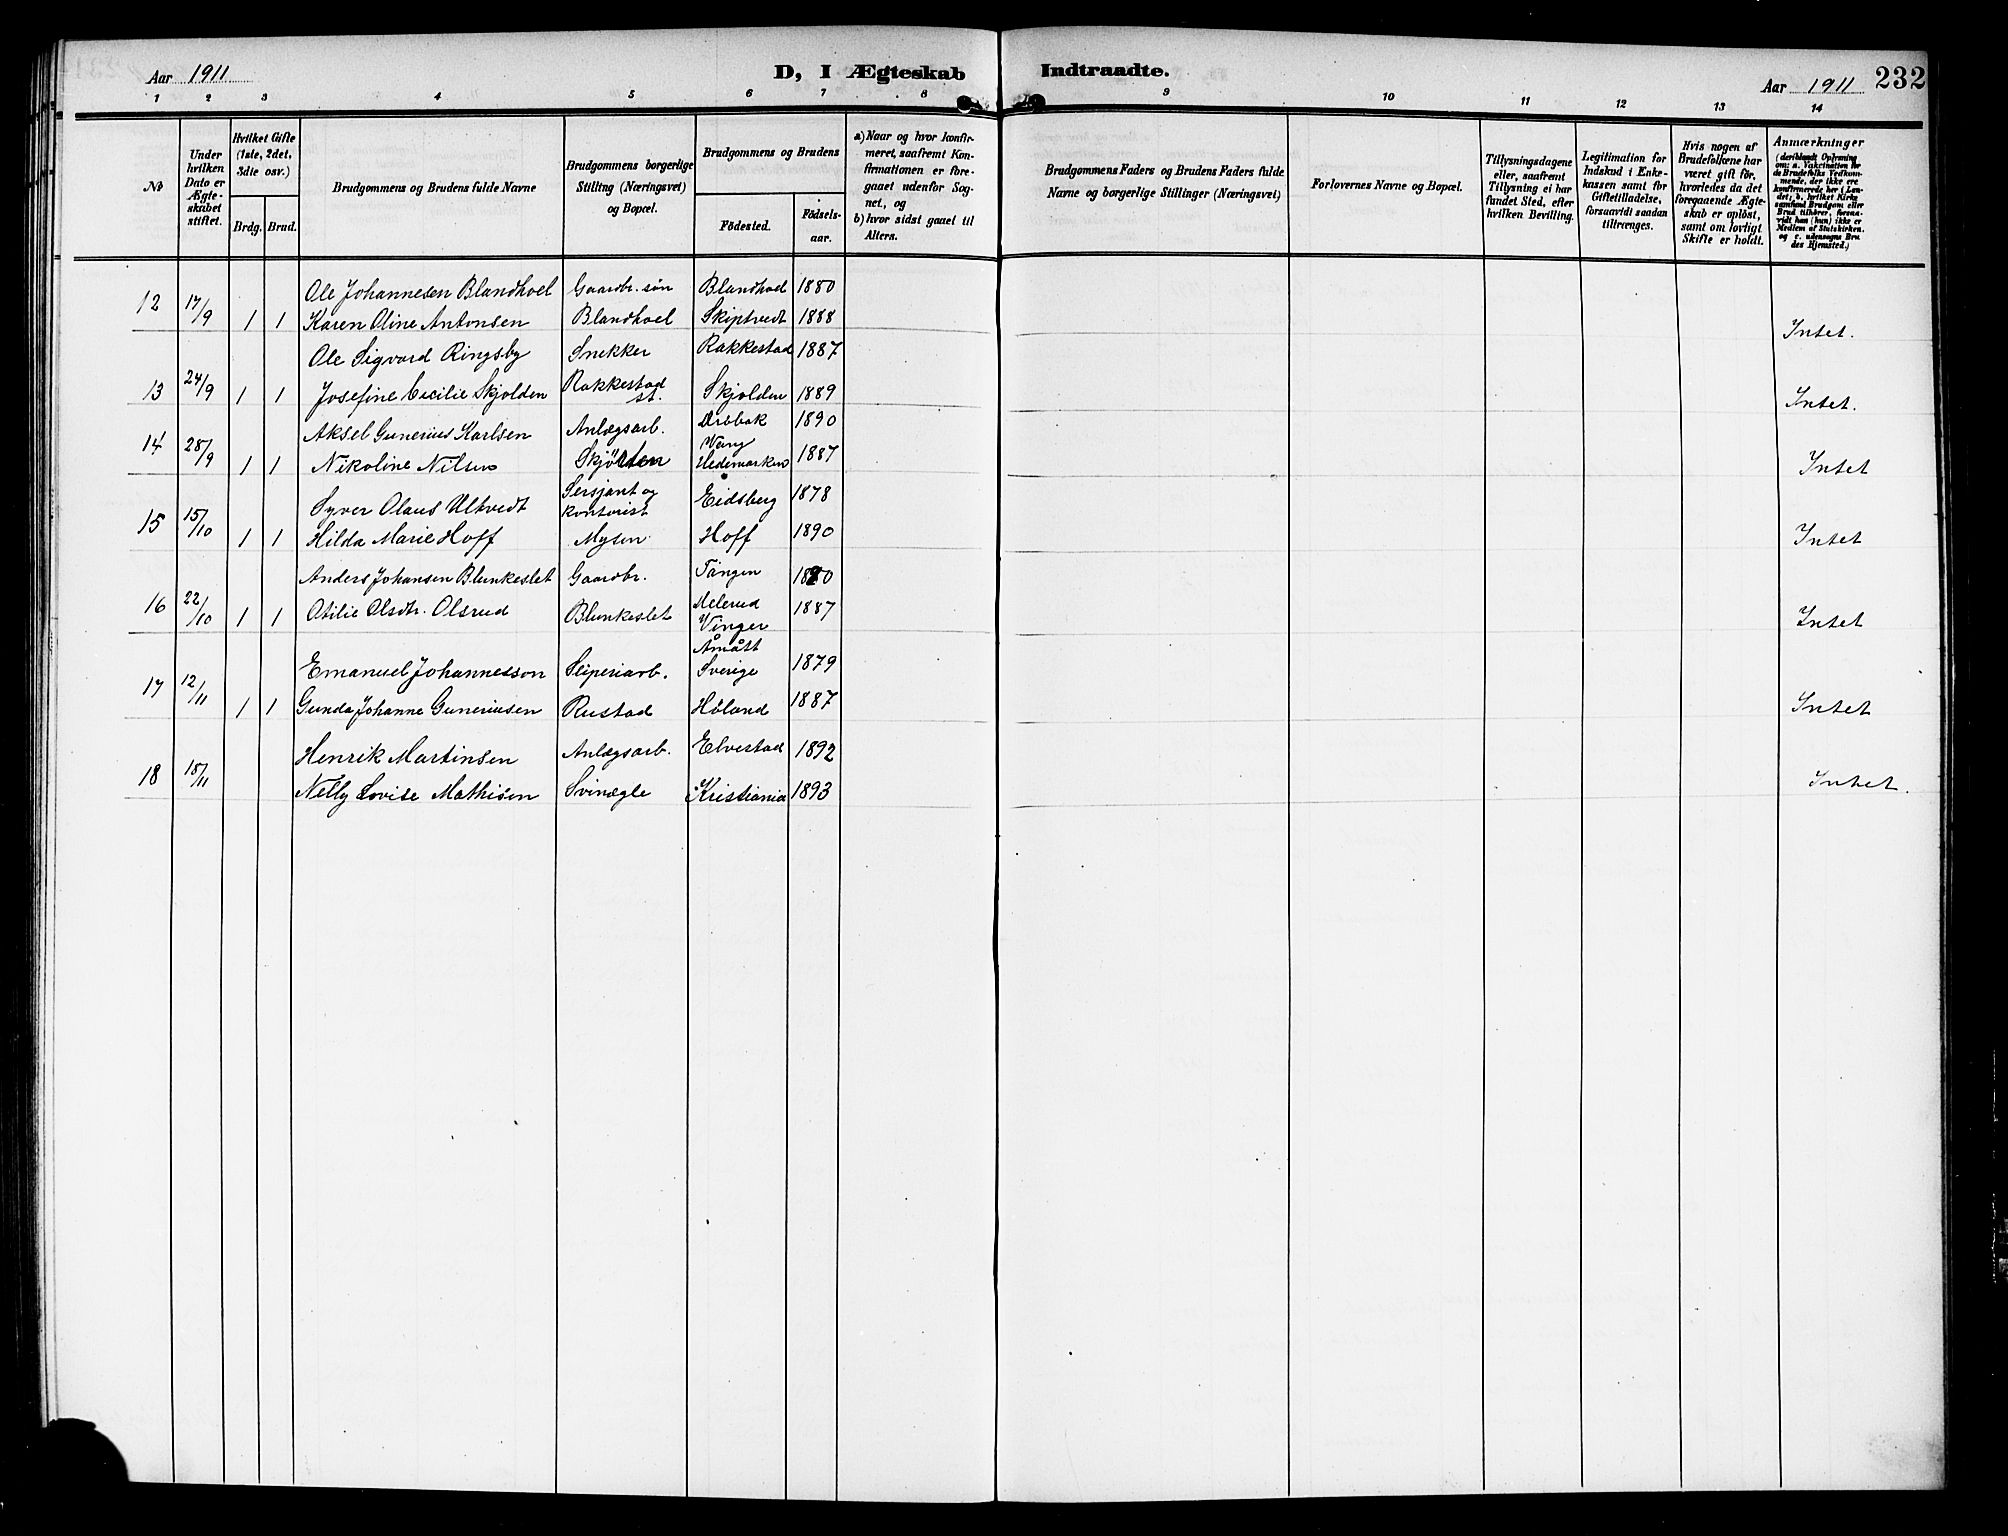 Aar 1911
D, I Ægteskab Indtraadte.
Aar 1911 232
1 2 3 4 5 6 7 8 9 10 11 12 13 14
No
Under hvilken Dato er Ægteskabet stiftet.
Hvilket Gifte (1ste, 2det, 3die osv.)
Brdg. Brud.
Brudgommens og Brudens fulde Navne
Brudgommens borgerlige Stilling (Næringsvei) og Bopæl.
Brudgommens og Brudens
Födested.
Födselsaar.
a) Naar og hvor konfirmeret, saafremt Konfirmationen er foregaaet udenfor Sognet, og
b) hvor sidst gaaet til Alters.
Brudgommens Faders og Brudens Faders fulde Navne og borgerlige Stillinger (Næringsvei)
Forlovernes Navne og Bopæl.
Tillysningsdagene eller, saafremt Tillysning ei har fundet Sted, efter hvilken Bevilling.
Legitimation for Indskud i Enkekassen samt for Giftetilladelse, forsaavidt saadan tiltrænges.
Hvis nogen af Brudefolkene har været gift för, hvorledes da det foregaaende Ægteskab er oplöst, samt om lovligt Skifte er holdt.
Anmærkninger
(deriblandt Oplysning om: a. Vakcination for de Brudefolks Vedkommende, der ikke ere konfirmerede her i Landet; b. hvilket Kirkesamfund Brudgom eller Brud tilhörer, forsaavidt han (hun) ikke er Medlem af Statskirken, og c. udensogns Brudes Hjemsted.)
Ole Johannesen Blandhoel Gaardbr. søn Blandhoel 1880
12 17/9 1 1 Karen Oline Antonsen Blandhoel Skiptvedt 1888 Intet.
Ole Sigvard Ringsby Snekker Rakkestad 1887
13 24/9 1 1 Josefine Cecilie Skjolden Rakkestad st. Skjolden 1889 Intet.
Aksel Gunerius Karlsen Anlægsarb. Drøbak 1890
14 28/9 1 1 Nikoline Nilsen Skjølden Vang Hedemarken 1887 Intet
Syver Olaus Ultvedt Sersjant og kontorist Eidsberg 1878
15 15/10 1 1 Hilda Marie Hoff Mysen Hoff 1890 Intet
Anders Johansen Blunkeslet Gaardbr. Tangen 1880
16 22/10 1 1 Otilie Olsdtr. Olsrud Blunkeslet Melerud Vinger 1887 Intet
Emanuel Johannesson Sliperiarb. Åmått Sverige 1879
17 12/11 1 1 Gunda Johanne Guneriusen Rustad Høland 1887 Intet
Henrik Martinsen Anlægsarb. Elvestad 1892
18 18/11 Nelly Lovise Mathisen Svinægle Kristiania 1893 Intet.